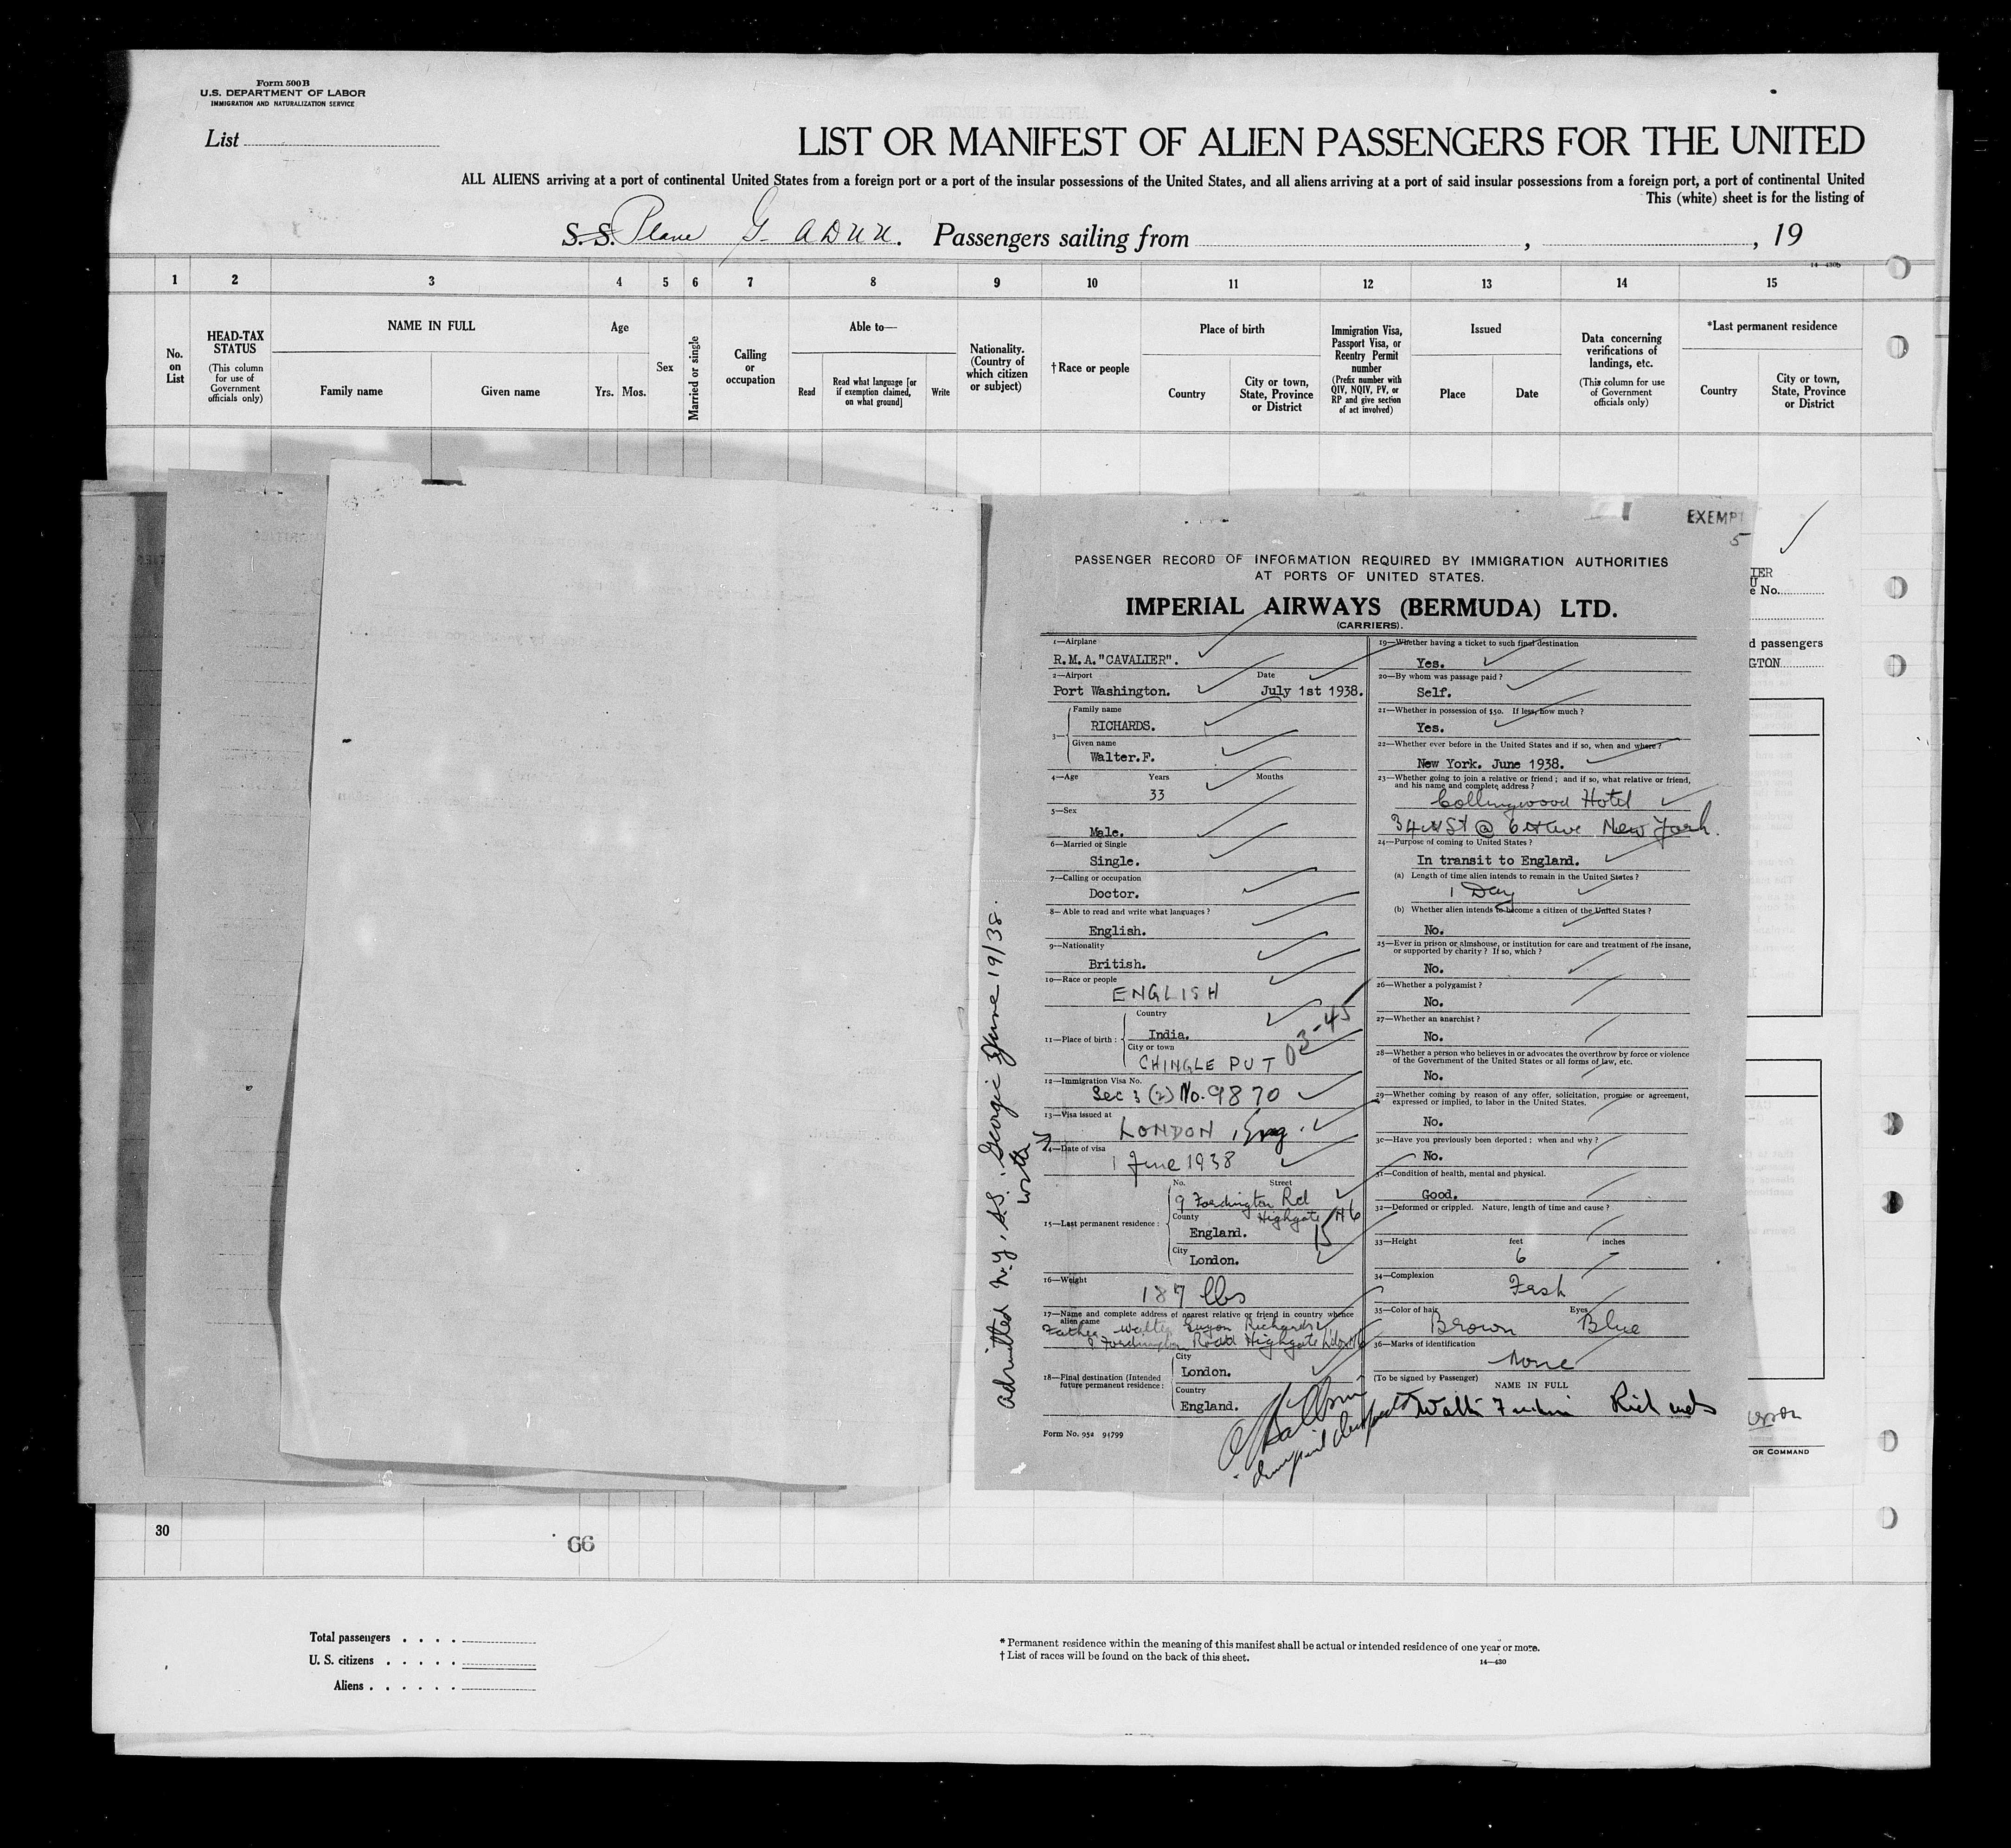 Form 500B
U.S. DEPARTMENT OF LABOR
IMMIGRATION AND NATURALIZATION SERVICE
List
LIST OR MANIFEST OF ALIEN PASSENGERS FOR THE UNITED
ALL ALIENS arriving at a port of continental United States from a foreign port or a port of the insular possessions of the United States, and all aliens arriving at a port of said insular possessions from a foreign port, a port of continental United
This (white) sheet is for the listing of
S.S. Plane G-ADUU. Passengers sailing from , , 19
14-430b
1 2 3 4 5 6 7 8 9 10 11 12 13 14 15
No. on List
HEAD-TAX STATUS
(This column for use of Government officials only)
NAME IN FULL
Family name
Given name
Age
Yrs. Mos.
Sex
Married or single
Calling or occupation
Able to—
Read
Read what language [or if exemption claimed, on what ground]
Write
Nationality. (Country of which citizen or subject)
†Race or people
Place of birth
Country
City or town, State, Province or District
Immigration Visa, Passport Visa, or Reentry Permit number
(Prefix number with QIV, NQIV, PV, or RP and give section of act involved)
Issued
Place
Date
Data concerning verifications of landings, etc.
(This column for use of Government officials only)
*Last permanent residence
Country
City or town, State, Province or District
EXEMPT
5
PASSENGER RECORD OF INFORMATION REQUIRED BY IMMIGRATION AUTHORITIES
AT PORTS OF UNITED STATES.
IMPERIAL AIRWAYS (BERMUDA) LTD.
(CARRIERS).
1—Airplane
R.M.A."CAVALIER".
2—Airport Date
Port Washington. July 1st 1938.
3— Family name
RICHARDS.
Given name
Walter.F.
4—Age Years Months
33
5—Sex
Male.
6—Married or Single
Single.
7—Calling or occupation
Doctor.
8—Able to read and write what languages?
English.
9—Nationality
British.
10—Race or people
ENGLISH
11—Place of birth: Country
India.
City or town
CHINGLE PUT
03-45
12—Immigration Visa No.
Sec 3 (2) No. 9870
13—Visa issued at
LONDON, Eng.
14—Date of visa
1 June 1938
15—Last permanent residence: No. Street
9 Fordington Rd
County Highgate N6
England.
City
London.
16—Weight
187 lbs
17—Name and complete address of nearest relative or friend in country whence alien came
Father Walter Guyon Richards
9 Fordington Road Highgate Ldon N6
18—Final destination (Intended future permanent residence: City
London.
Country
England.
Form No. 952 94799
19—Whether having a ticket to such final destination
Yes.
20—By whom was passage paid?
Self.
21—Whether in possession of $50. If less, how much?
Yes.
22—Whether ever before in the United States and if so, when and where?
New York. June 1938.
23—Whether going to join a relative or friend; and if so, what relative or friend, and his name and complete address?
Collingwood Hotel
34th St @ 6th Ave New York.
24—Purpose of coming to United States?
In transit to England.
(a) Length of time alien intends to remain in the United States?
1 Day
(b) Whether alien intends to become a citizen of the United States?
No.
25—Ever in prison or almshouse, or institution for care and treatment of the insane, or supported by charity? If so, which?
No.
26—Whether a polygamist?
No.
27—Whether an anarchist?
No.
28—Whether a person who believes in or advocates the overthrow by force or violence of the Government of the United States or all forms of law, etc.
No.
29—Whether coming by reason of any offer, solicitation, promise or agreement, expressed or implied, to labor in the United States.
No.
30—Have you previously been deported; when and why?
No.
31—Condition of health, mental and physical.
Good.
32—Deformed or crippled. Nature, length of time and cause?
33—Height feet inches
6
34—Complexion
Fresh
35—Color of hair Eyes
Brown Blue
36—Marks of identification
None
(To be signed by Passenger)
NAME IN FULL
Richards
admitted N.Y. S.S. Georgic June 19/38.
IER
U
e No.
d passengers
GTON
OR COMMAND
30
66
Total passengers
U. S. citizens
Aliens
* Permanent residence within the meaning of this manifest shall be actual or intended residence of one year or more.
† List of races will be found on the back of this sheet.
14—430